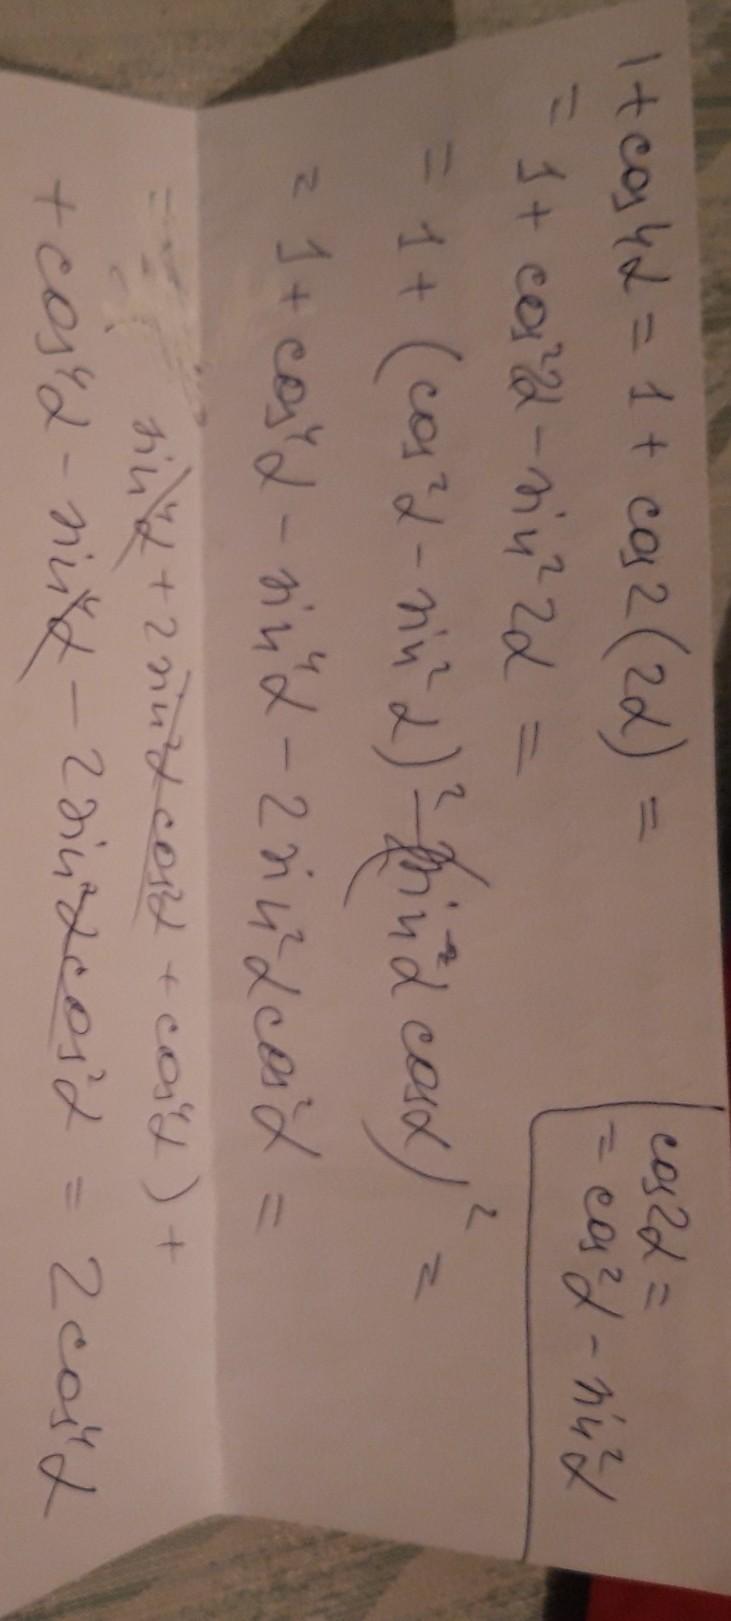 1 + cos4α = 1 + cos2(2α) =
= 1 + cos²2α - sin²2α =
= 1 + (cos²α - sin²α)² - (sin²α cosα)² =
= 1 + cos⁴α - sin⁴α - 2sin²α cos²α =
= sin⁴α + 2sin²α cos²α + cos⁴α) +
+ cos⁴α - sin⁴α - 2sin²α cos²α = 2cos⁴α
cos2α =
= cos²α - sin²α